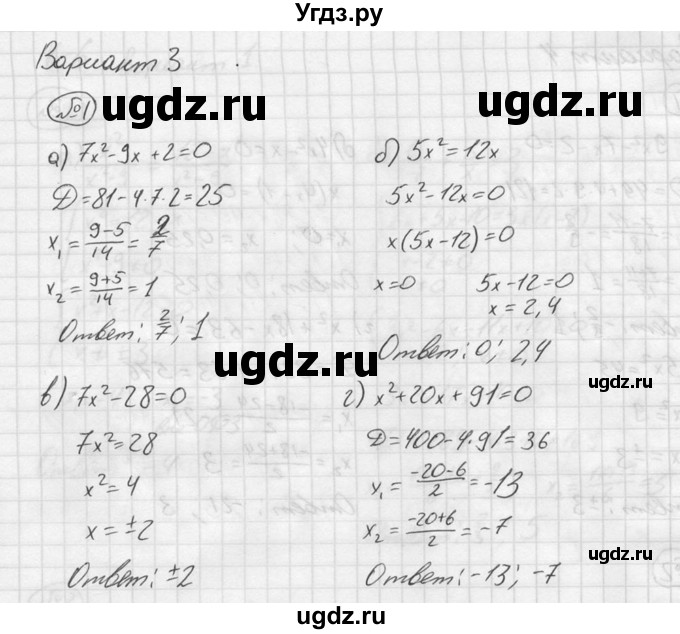 Угдз.ру
Вариант 3
№1
ugdz.ru ugdz.ru
а) 7x²-9x+2=0
D=81-4·7·2=25
x₁=(9-5)/14=2/7
x₂=(9+5)/14=1
Ответ: 2/7; 1
б) 5x²=12x
5x²-12x=0
x(5x-12)=0
x=0 5x-12=0
x=2,4
Ответ: 0; 2,4
ugdz.ru
ugdz.ru
в) 7x²-28=0
7x²=28
x²=4
x=±2
Ответ: ±2
г) x²+20x+91=0
D=400-4·91=36
x₁=(-20-6)/2=-13
x₂=(-20+6)/2=-7
Ответ: -13; -7
ugdz.ru
ugdz.ru
ugdz.ru